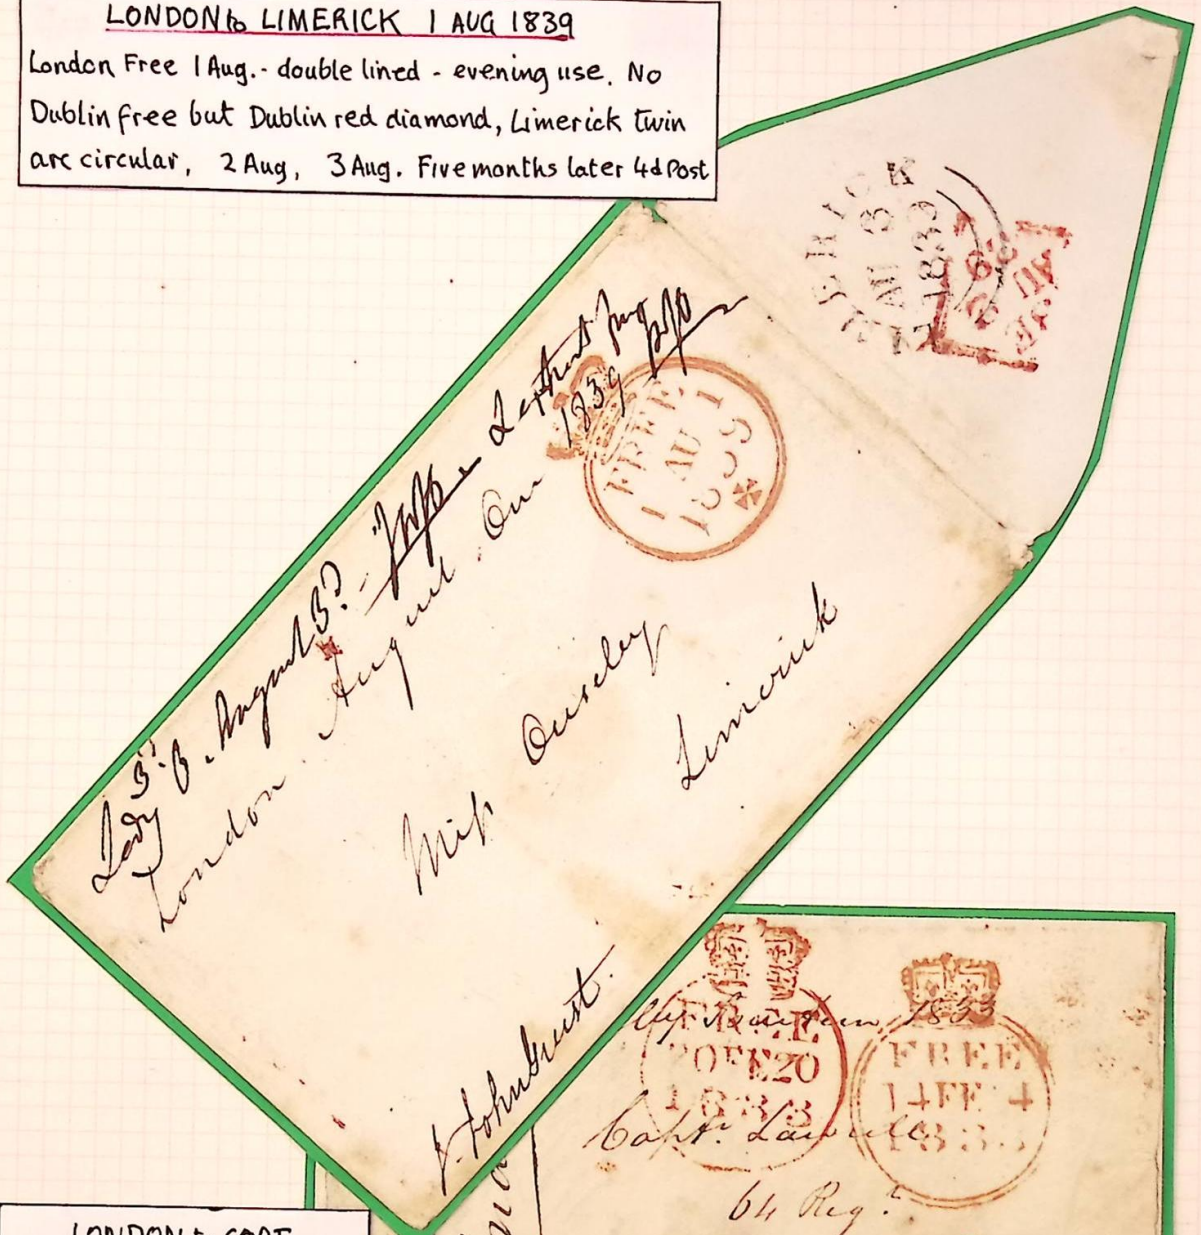 LONDON to LIMERICK 1 AUG 1839
London Free 1 Aug. - double lined - evening use. No
Dublin free but Dublin red diamond, Limerick twin
arc circular, 2 Aug, 3 Aug. Five months later 4d Post
LIMERICK
AU 3
1839
AU
1839
FREE
1 AU 1
1839
Lady B. August 3d
London August One 1839
Miss Ouseley
Limerick
FREE
20 FE 20
1833
FREE
14 FE 4
1833
1833
Capt.
64 Regt
LONDON to